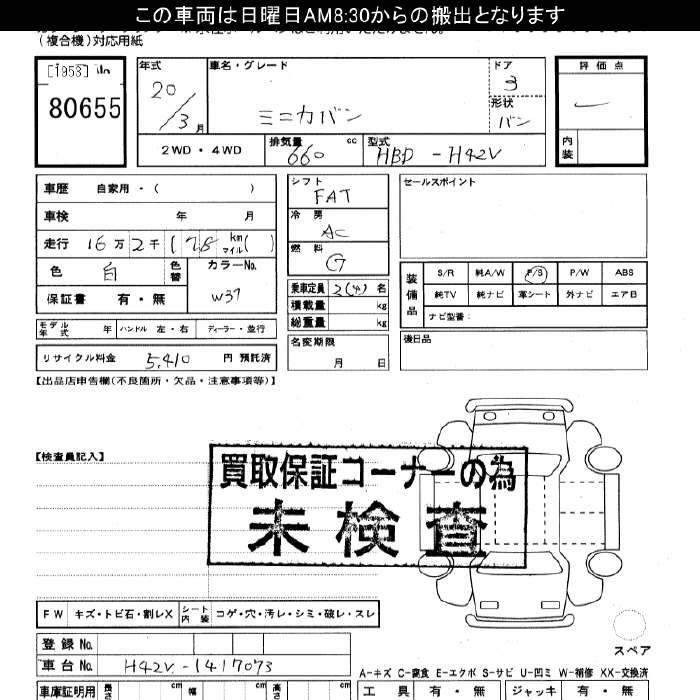 この車両は日曜日AM8:30からの搬出となります
(複合機)対応用紙
[1953]
80655
年式
20/3月
車名・グレード
ミニカバン
ドア
3
形状
バン
評価点
内装
2WD・4WD
排気量
660 cc
型式
HBD-H42V
車歴 自家用・( )
車検 年 月
走行 16万2千178 km マイル( )
色 白 色替
カラーNo.
W37
保証書 有・無
シフト
FAT
冷房
AC
燃料
G
乗車定員 2(4) 名
積載量 kg
総重量 kg
セールスポイント
装備品
S/R 純A/W P/S P/W ABS
純TV 純ナビ 革シート 外ナビ エアB
ナビ型番:
モデル年式 年 ハンドル 左・右 ディーラー・並行
名変期限
月 日
後日品
リサイクル料金 5,410 円 預託済
【出品店申告欄(不良箇所・欠品・注意事項等)】
【検査員記入】
買取保証コーナーの為
未検査
FW キズ・トビ石・割レX シート内装 コゲ・穴・汚レ・シミ・破レ・スレ
スペア
登録No.
車台No. H42V-1417073
A-キズ C-腐食 E-エクボ S-サビ U-凹ミ W-補修 XX-交換済
車庫証明用 長さ cm 幅 cm 高さ cm
工具 有・無 ジャッキ 有・無